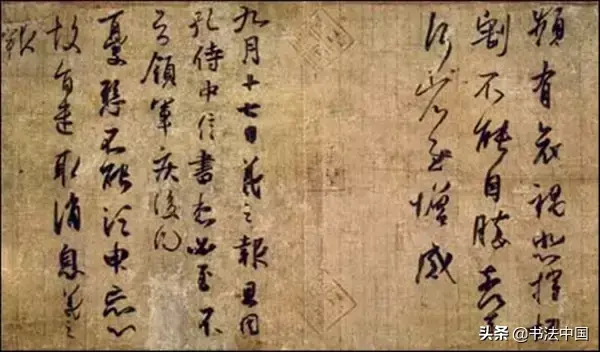 頻有哀禍悲摧切
割不能自勝奈何
奈何省慰增感
九月十七日羲之報且因
孔侍中信書想必至不
知領軍疾後問
憂懸不能須臾忘心
故旨遣取消息羲之
報
头条 @书法中国